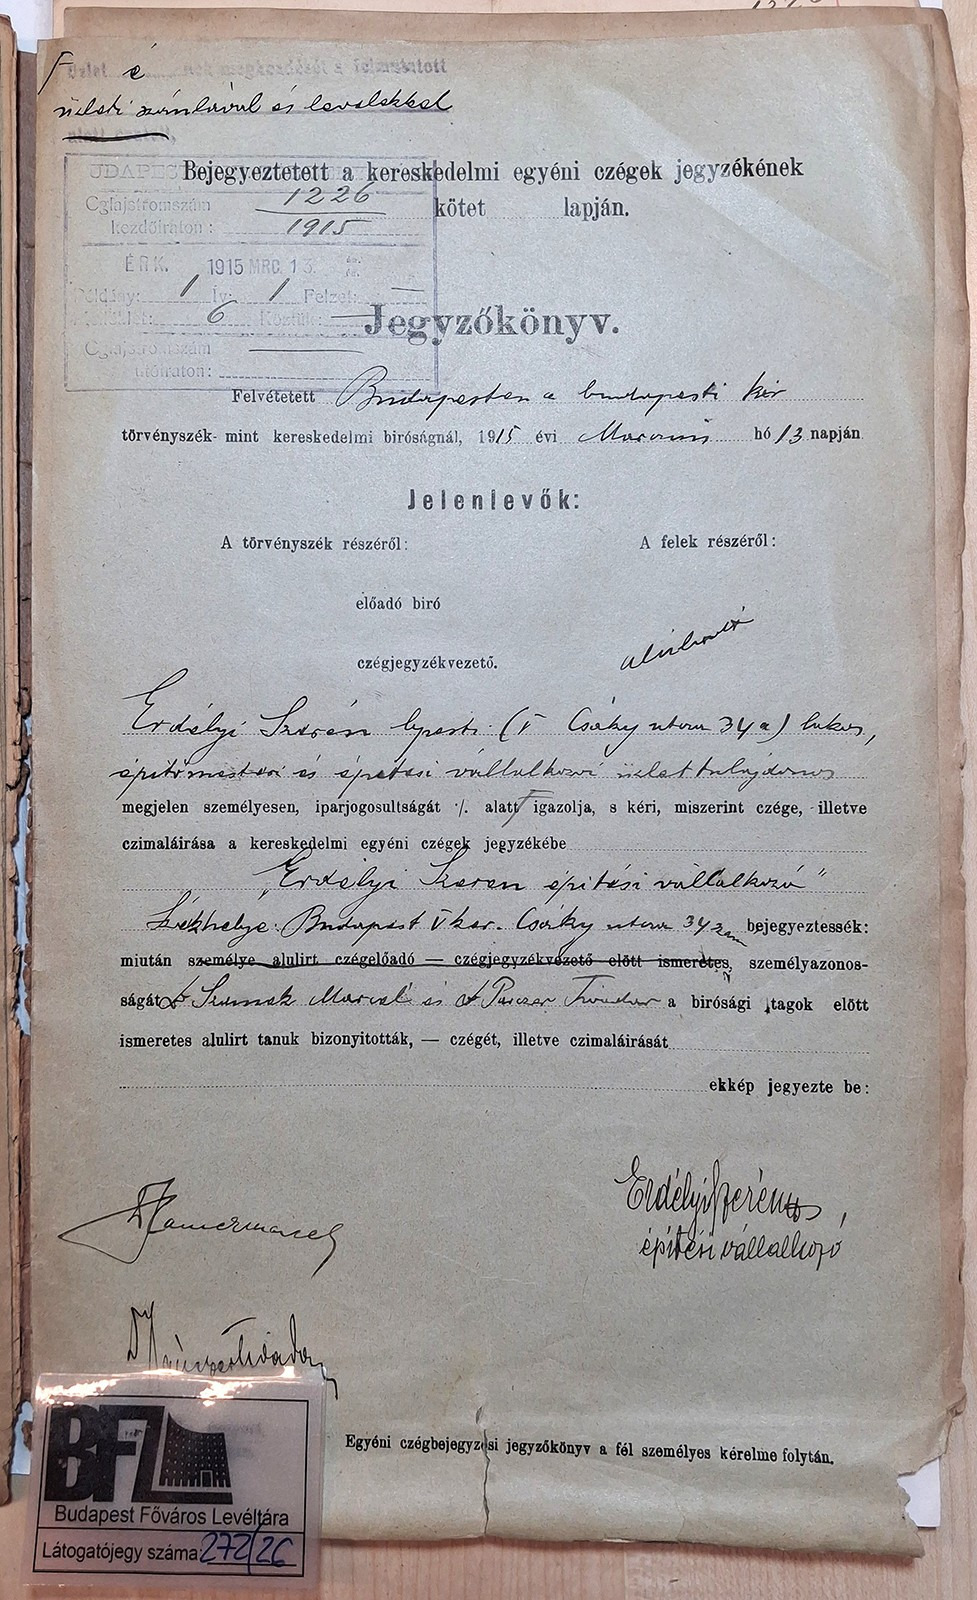 F é
Üzlet megkezdését a felmutatott
üzleti számlával és levelekkel
Bejegyeztetett a kereskedelmi egyéni czégek jegyzékének
kötet lapján.
UDAPEST
Cglajstromszám 1226
kezdőiraton: 1915
ÉRK. 1915 MRC. 13
Példány: 1 Ív: 1 Felzet: —
6 —
Cglajstromszám
utóiraton:
Jegyzőkönyv.
Felvétetett Budapesten a budapesti kir
törvényszék- mint kereskedelmi biróságnál, 1915 évi Marcius hó 13 napján
Jelenlevők:
A törvényszék részéről:
A felek részéről:
előadó biró
czégjegyzékvezető.
alulirottó
Erdélyi Szerén bpesti (V Csáky utca 34 a) lakos,
építőmesteri és építési vállalkozói üzlettulajdonos
megjelen személyesen, iparjogosultságát ·/. alatt igazolja, s kéri, miszerint czége, illetve
czimaláirása a kereskedelmi egyéni czégek jegyzékébe
"Erdélyi Szeren építési vállalkozó"
Székhelye: Budapest V ker. Csáky utca 34 bejegyeztessék:
miután személye alulirt czégelőadó — czégjegyzékvezető előtt ismeretes, személyazonos-
ságát Dr Marcel és Dr Tivadar a birósági tagok előtt
ismeretes alulirt tanuk bizonyitották, — czégét, illetve czimaláirását
ekkép jegyezte be:
Erdélyi Szerén
építési vállalkozó
Egyéni czégbejegyzési jegyzőkönyv a fél személyes kérelme folytán.
BFL
Budapest Főváros Levéltára
Látogatójegy száma: 272/26